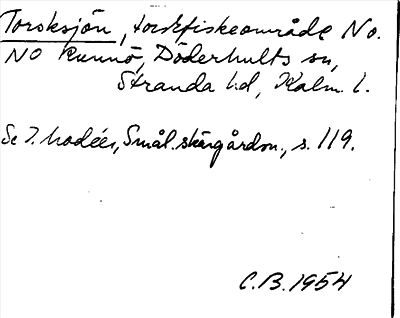 Torsksjön, torskfiskeområde No.
NO Runnö, Döderhults sn,
Stranda hd, Kalm. l.
Se I. Modéer, Smål. skärgårdsn., s. 119.
C.B. 1954